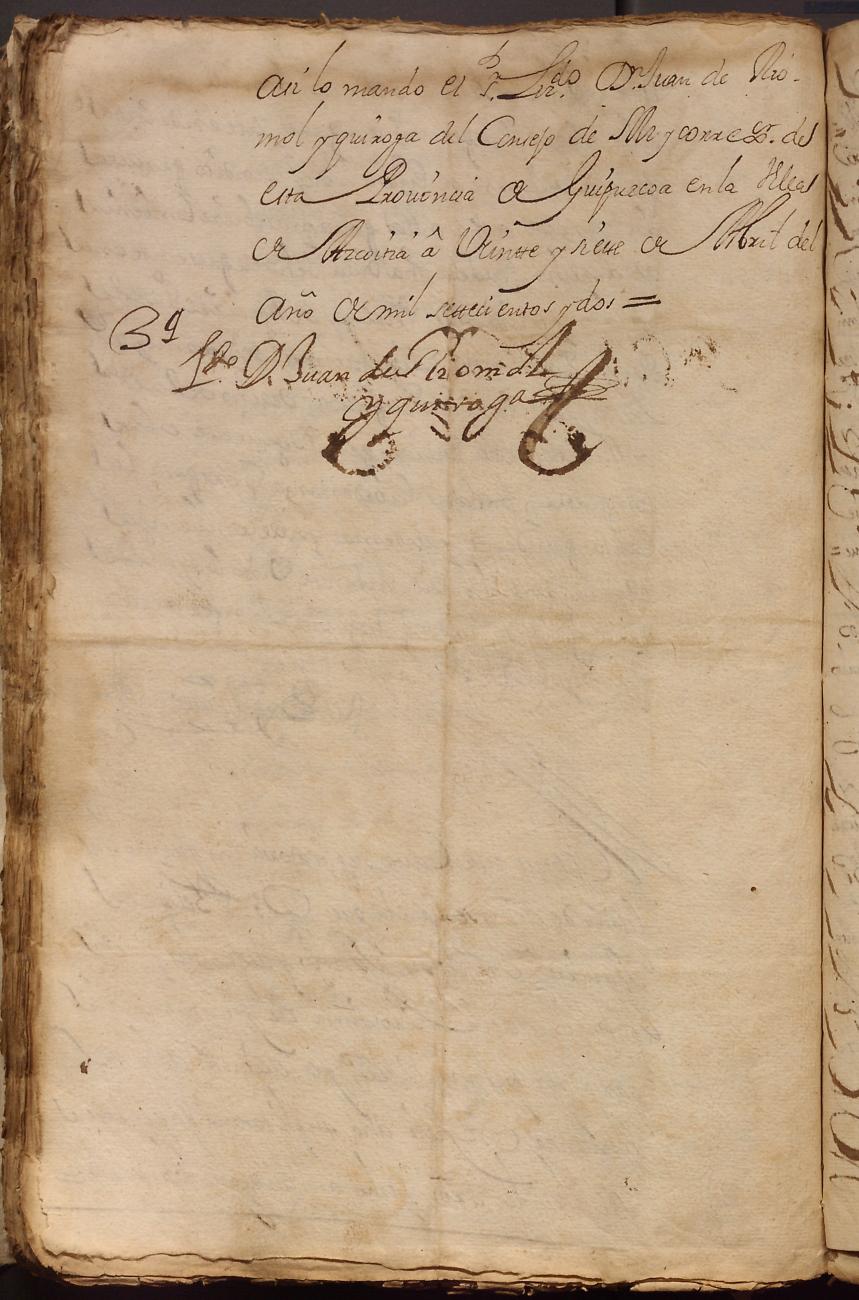 Asi lo mando el Sr. Lizdo Dn Juan de Rio-
mol y quiroga del Consejo de SM y correxor. de
esta Provincia de Guipuzcoa en la Villa
de Azcoitia â Veintte y siete de Abril del
Año de mil settecientos y dos =
Ldo D. Juan de Riomol
y quiroga